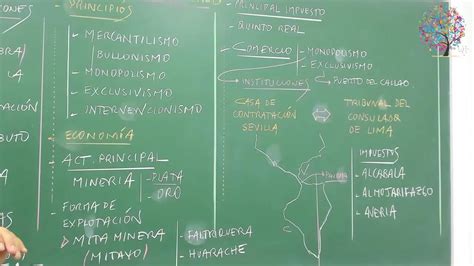 CIONES
BRA
LA
ACIÓN
BUTO
AS
PRINCIPIOS
- MERCANTILISMO
BULLONISMO
- MONOPOLISMO
- EXCLUSIVISMO
- INTERVENCIONISMO
- ECONOMÍA
- ACT. PRINCIPAL
MINERÍA
- PLATA
- ORO
- FORMA DE
EXPLOTACIÓN
MITA MINERA
(MITAYO)
- FALTRIQUERA
- HUARACHE
PRINCIPAL IMPUESTO
- QUINTO REAL
- COMERCIO
- MONOPOLISMO
- EXCLUSIVISMO
- INSTITUCIONES
- PUERTO DEL CALLAO
CASA DE
CONTRATACIÓN
SEVILLA
TRIBUNAL DEL
CONSULADOR
DE LIMA
IMPUESTOS
- ALCABALA
- ALMOJARIFAZGO
- AVERIA